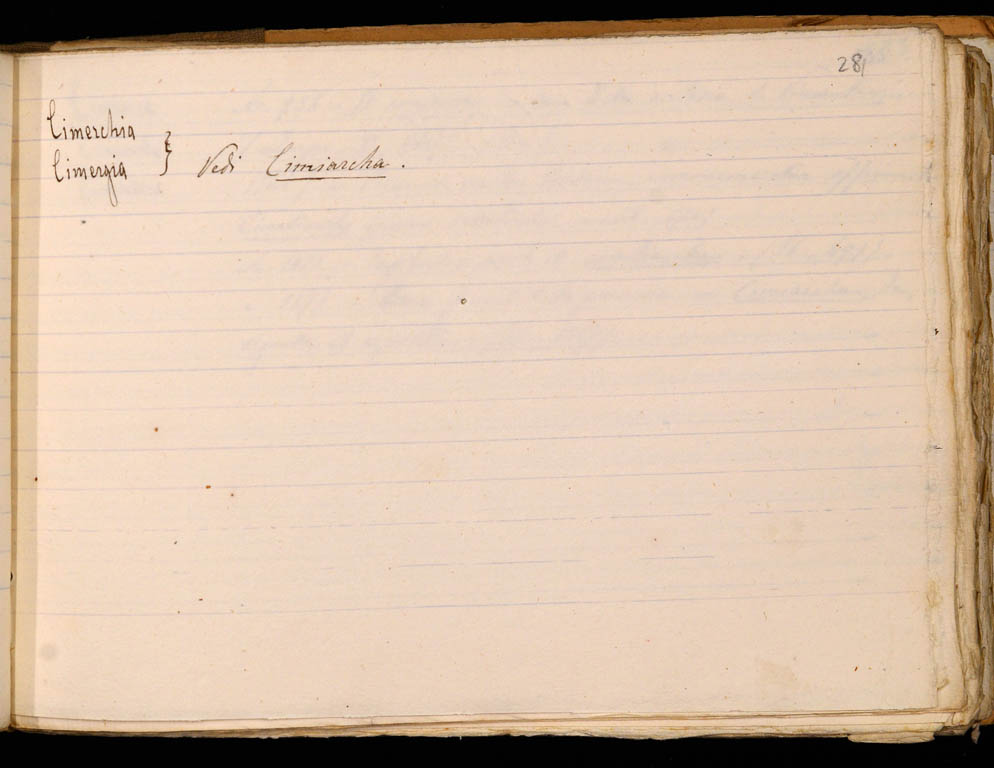 28
Cimerchia
Cimergia } Vedi Cimiarcha.